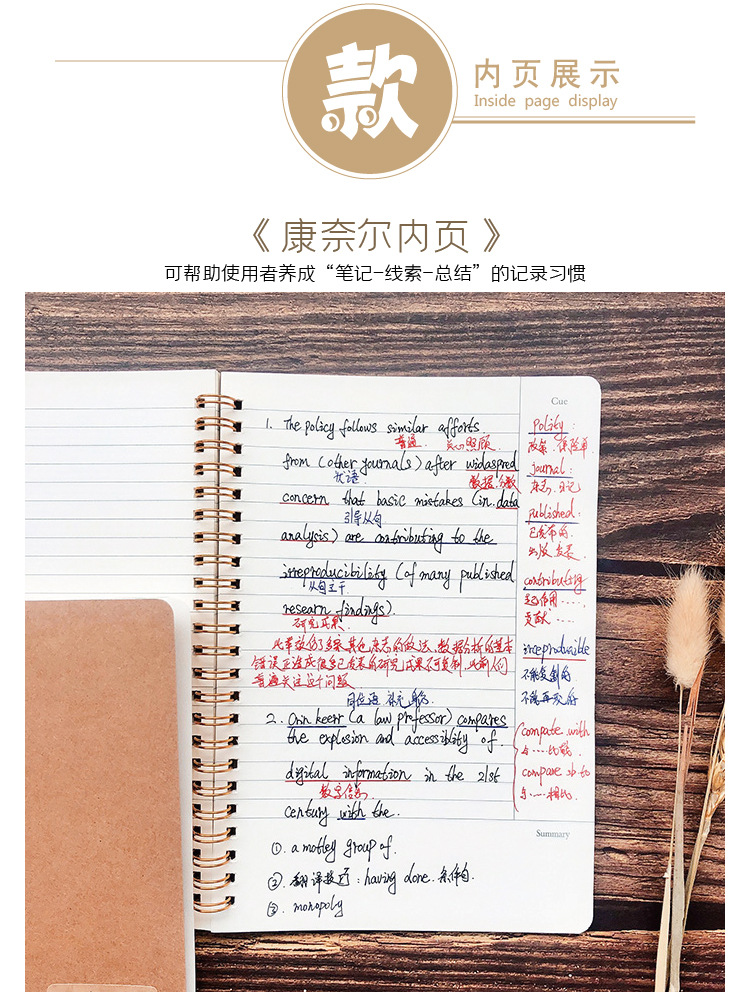 款
内页展示
Inside page display
《 康奈尔内页 》
可帮助使用者养成“笔记-线索-总结”的记录习惯
Cue
1. The policy follows similar afforts.
普通. 关心照顾
from (other journals) after widaspred
状语. 数据分散
concern that basic mistakes (in data
引导从句
analysis) are contributing to the
irreproducibility (of many published
从句主干.
researn findings).
研究成果.
此举效仿了多家其他杂志的做法,数据分析的基本
错误正造成很多已发表的研究成果不可复制,此前人们
普遍关注这个问题
同位语 补充身份
2. Orin keerr (a law professor) compares
the explosion and accessiblity of
digital information in the 21st
数字信息
century with the.
policy:
政策. 保险单.
journal:
杂志. 日记
published:
已发布的.
出版 发表.
contributing
起作用....,
贡献....
irreproduaible
不能复制的
不能再现的
compate with
与....比较.
compare sb to
与....相比.
Summary
①. a motley group of.
②. 翻译技巧: having done. 条件句.
③. monopoly